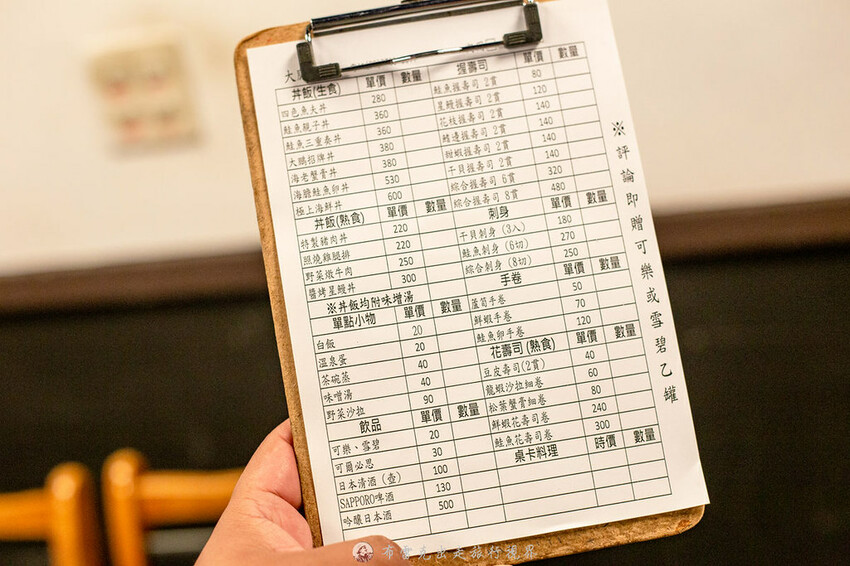 大
丼飯(生食) 單價 數量
四色魚夫丼 280
鮭魚親子丼 360
鮭魚三重奏丼 360
大鵬招牌丼 380
海老蟹膏丼 380
海膽鮭魚卵丼 530
極上海鮮丼 600
丼飯(熟食) 單價 數量
特製豬肉丼 220
照燒雞腿排 220
野菜燉牛肉 250
醬烤星鰻丼 300
※丼飯均附味增湯
單點小物 單價 數量
白飯 20
溫泉蛋 20
茶碗蒸 40
味噌湯 40
野菜沙拉 90
飲品 單價 數量
可樂、雪碧 20
可爾必思 30
日本清酒(壺) 100
SAPPORO啤酒 130
吟釀日本酒 500
握壽司 單價 數量
鮭魚握壽司 2貫 80
星鰻握壽司 2貫 120
花枝握壽司 2貫 140
鰭邊握壽司 2貫 140
甜蝦握壽司 2貫 140
干貝握壽司 2貫 140
綜合握壽司 6貫 320
綜合握壽司 8貫 480
刺身 單價 數量
干貝刺身 (3入) 180
鮭魚刺身 (6切) 270
綜合刺身 (8切) 250
手卷 單價 數量
蘆筍手卷 50
鮮蝦手卷 70
鮭魚卵手卷 120
花壽司(熟食) 單價 數量
豆皮壽司(2貫) 40
龍蝦沙拉細卷 60
松葉蟹膏細卷 80
鮮蝦花壽司卷 240
鮭魚花壽司卷 300
桌卡料理 時價 數量
※評論即贈可樂或雪碧乙罐
布雷克出走旅行視界